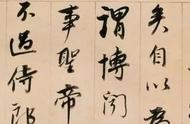 矣自以為
謂博聞
事聖帝
不過侍郎